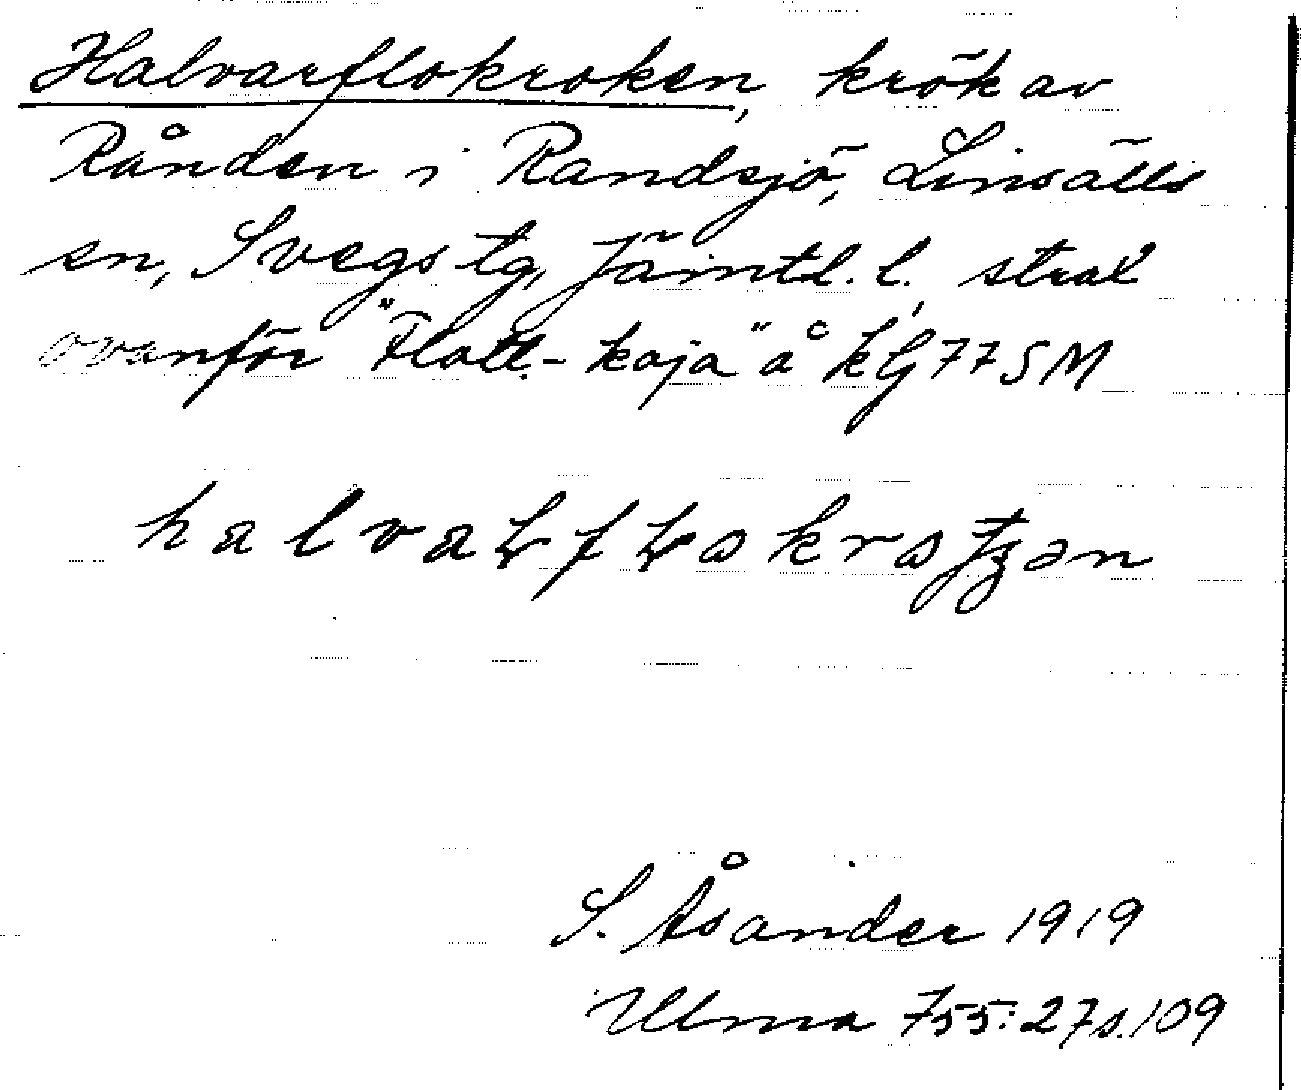 Halvarflokroken, krök av
Rånden i Randsjö, Linsälls
sn, Svegs tg, Jämtl. l., strax
ovanför "Flott-koja" å kG 77 SM
S. Åsander 1919
Ulma 755:27 s. 109